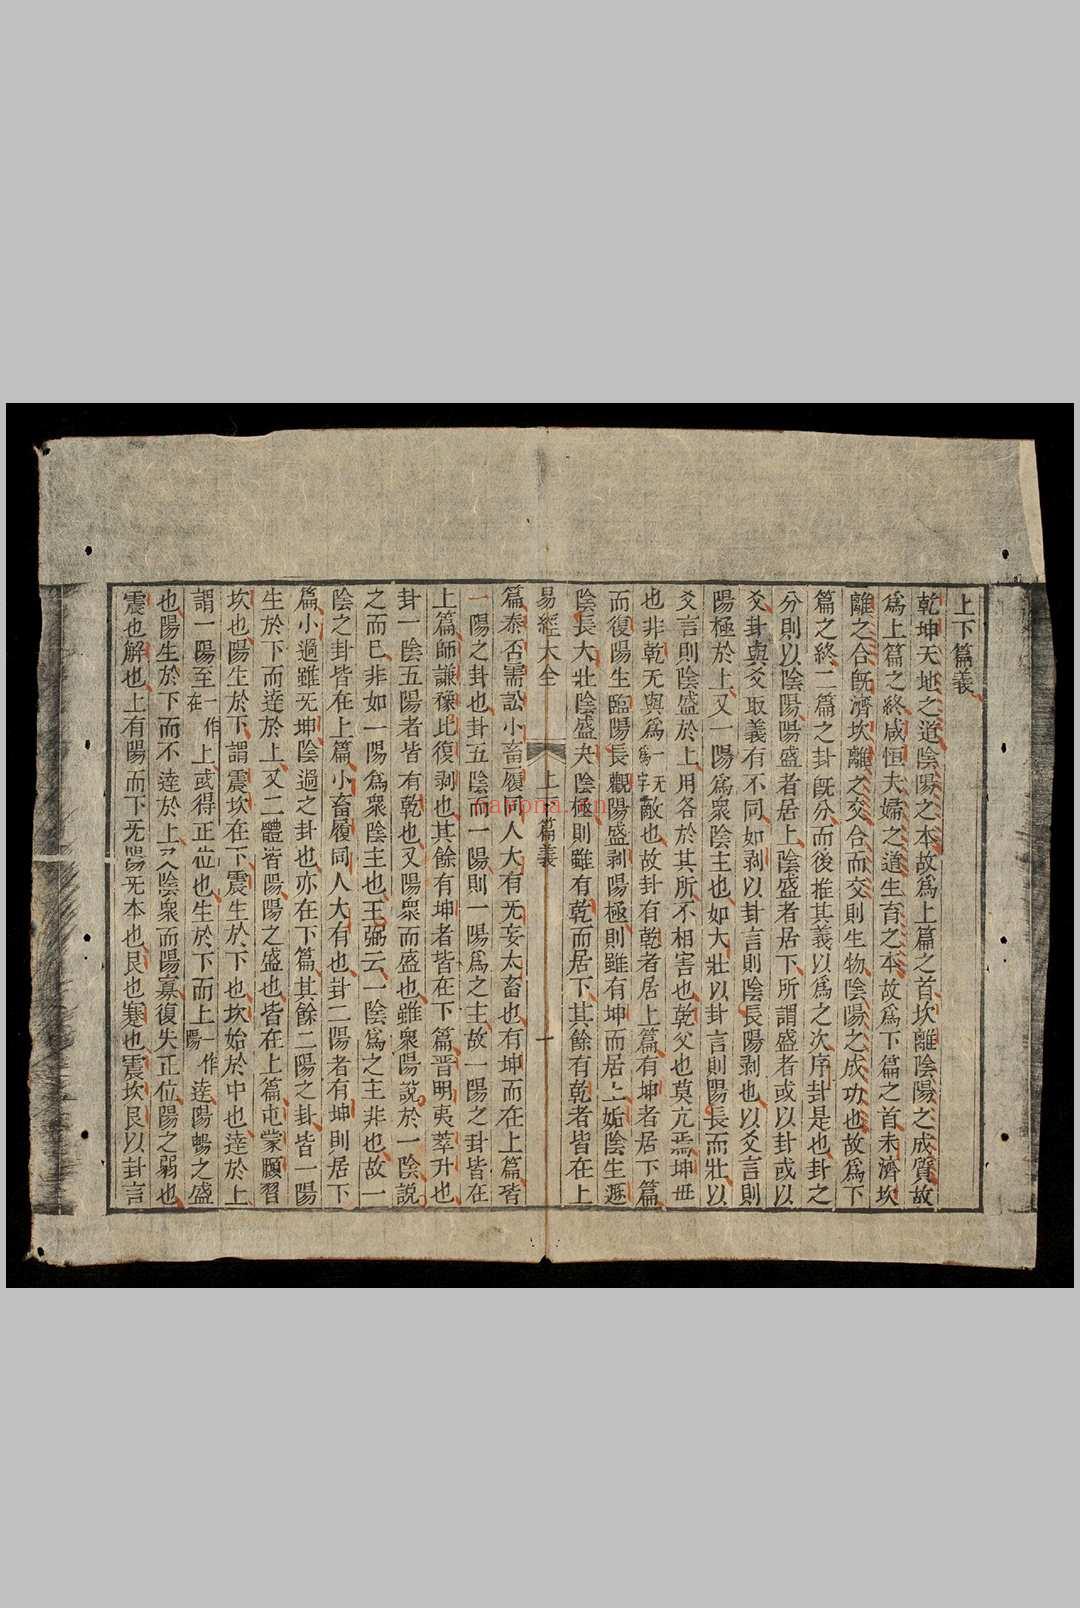 上下篇義
乾坤天地之道陰陽之本故爲上篇之首坎離陰陽之成質故
爲上篇之終咸恒夫婦之道生育之本故爲下篇之首未濟坎
離之合旣濟坎離之交合而交則生物陰陽之成功也故爲下
篇之終二篇之卦旣分而後推其義以爲之次序卦是也卦之
分則以陰陽陽盛者居上陰盛者居下所謂盛者或以卦或以
爻卦與爻取義有不同如剥以卦言則陰長陽剥也以爻言則
陽極於上又一陽爲衆陰主也如大壯以卦言則陽長而壯以
爻言則陰盛於上用各於其所不相害也乾父也莫亢焉坤毋
也非乾无與爲一无爲字敵也故卦有乾者居上篇有坤者居下篇
而復陽生臨陽長觀陽盛剥陽極則雖有坤而居上姤陰生遯
陰長大壯陰盛夬陰極則雖有乾而居下其餘有乾者皆在上
易經大全 上下篇義 十
篇泰否需訟小畜履同人大有无妄大畜也有坤而在上篇皆
一陽之卦也卦五陰而一陽則一陽爲之主故一陽之卦皆在
上篇師謙豫比復剥也其餘有坤者皆在下篇晋明夷萃升也
卦一陰五陽者皆有乾也又陽衆而盛也雖衆陽說於一陰說
之而已非如一陽爲衆陰主也王弼云一陰爲之主非也故一
陰之卦皆在上篇小畜履同人大有也卦二陽者有坤則居下
篇小過雖无坤陰過之卦也亦在下篇其餘二陽之卦皆一陽
生於下而逹於上又二體皆陽陽之盛也皆在上篇屯蒙頤習
坎也陽生於下謂震坎在下震生於下也坎始於中也逹於上
謂一陽至一作在上或得正位也生於下而上一作陽逹陽暢之盛
也陽生於下而不逹於上又陰衆而陽寡復失正位陽之弱也
震也解也上有陽而下无陽无本也艮也蹇也震坎艮以卦言